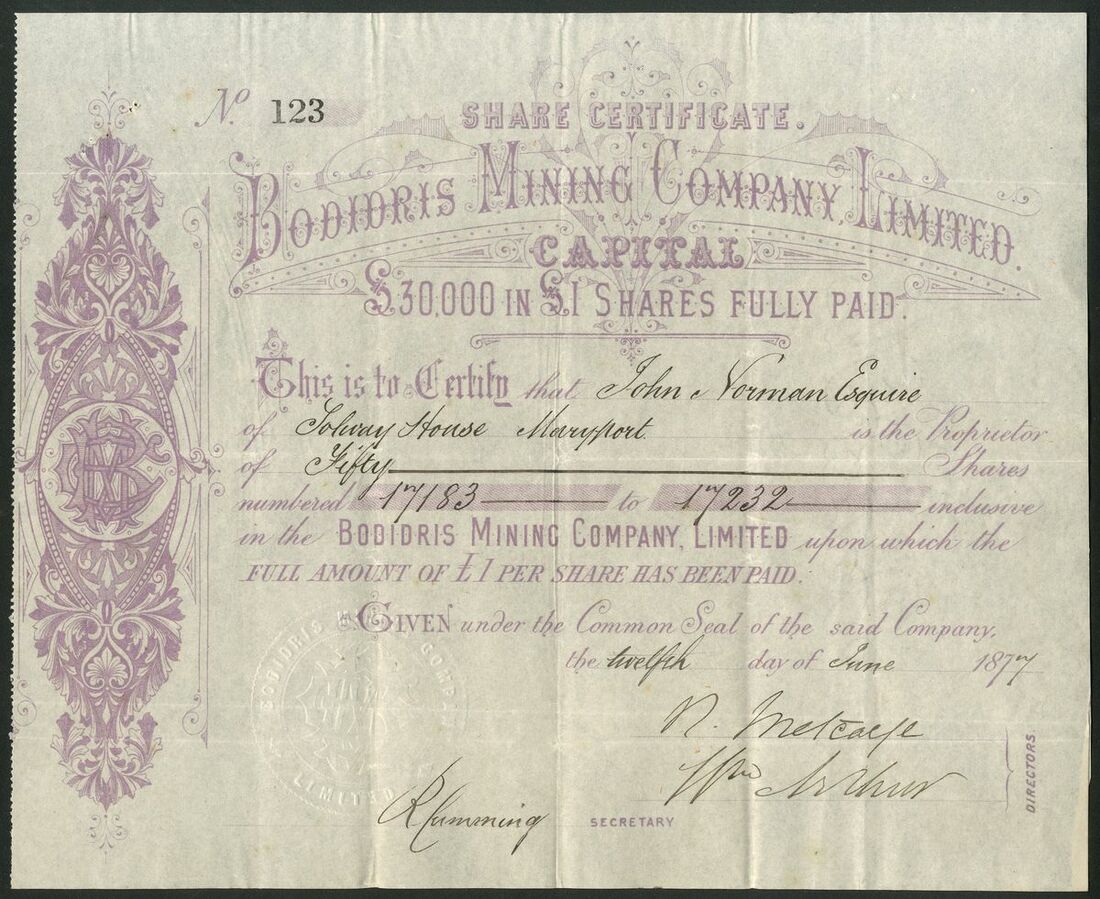 No. 123
SHARE CERTIFICATE.
BODIDRIS MINING COMPANY, LIMITED.
CAPITAL
£30,000 IN £1 SHARES FULLY PAID.
This is to Certify that John Norman Esquire
of Solway House Maryport is the Proprietor
of Fifty Shares
numbered 17183 to 17232 inclusive
in the BODIDRIS MINING COMPANY, LIMITED upon which the
FULL AMOUNT OF £1 PER SHARE HAS BEEN PAID.
GIVEN under the Common Seal of the said Company,
the twelfth day of June 1877
BODIDRIS MINING COMPANY
LIMITED
N. Metcalfe
Wm Arthur
DIRECTORS.
R Cumming SECRETARY